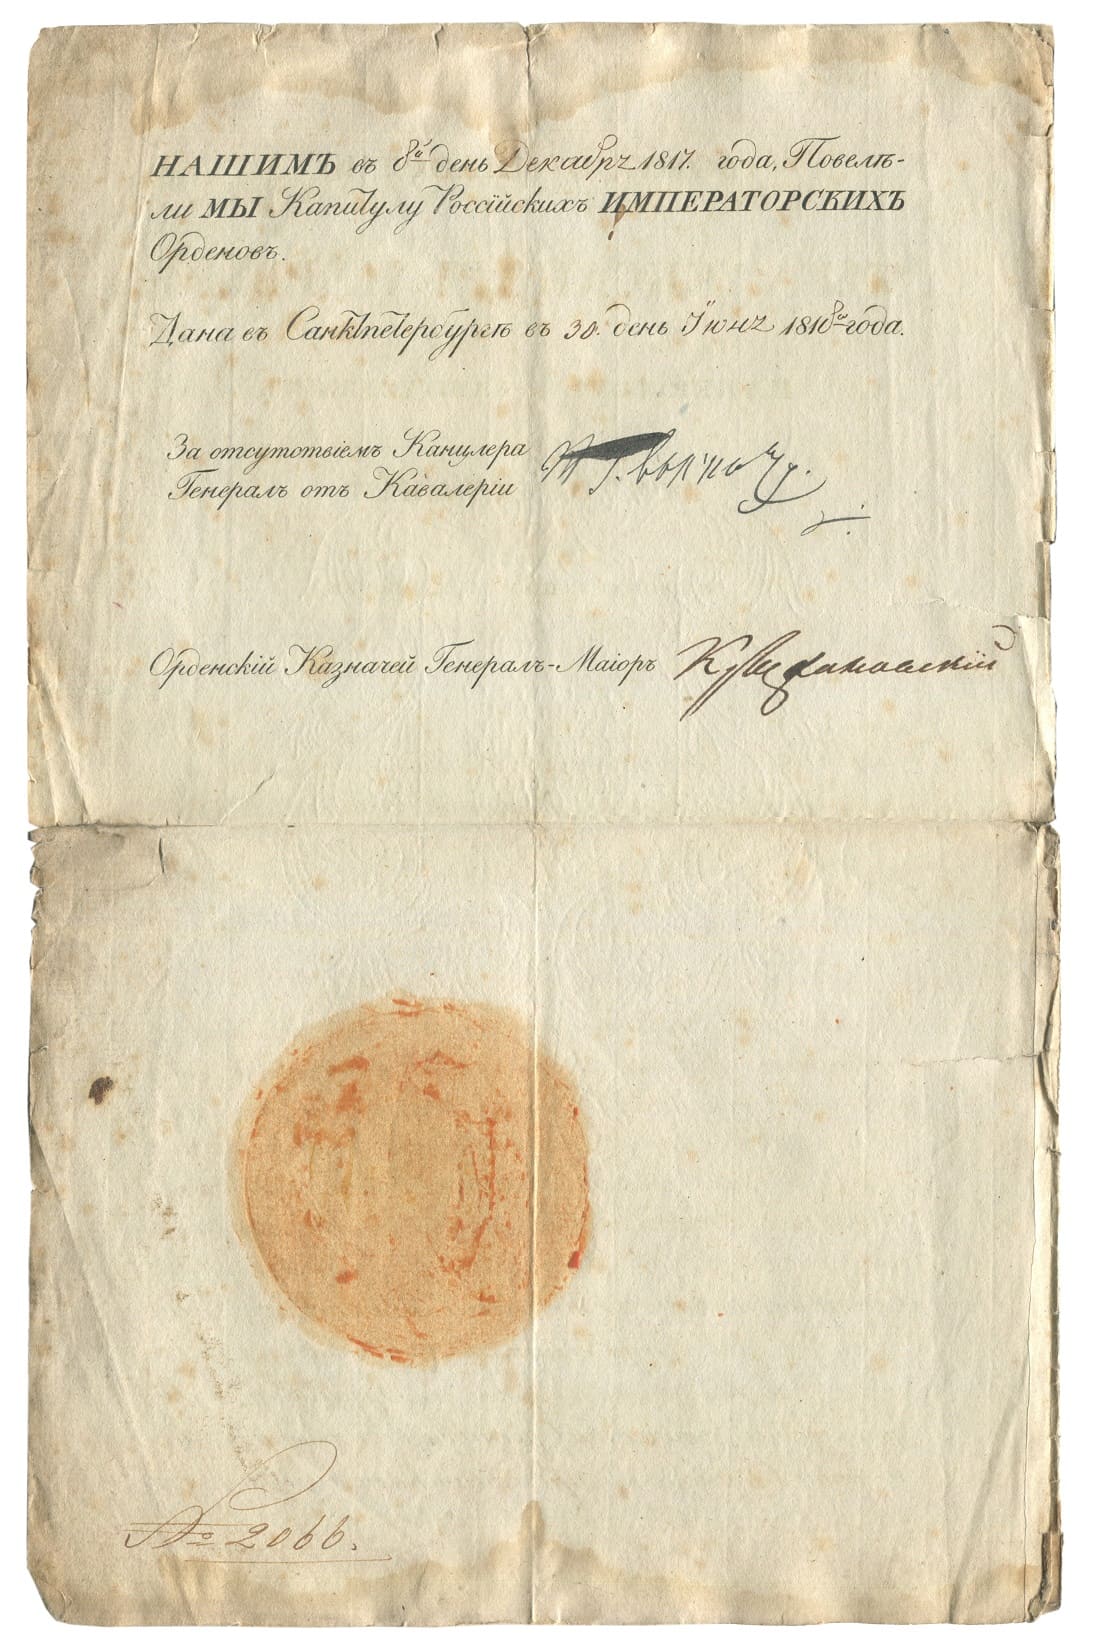 НАШИМЪ въ 8й день Декабря 1817. года, Повелѣ-
ли МЫ Капитулу Россійскихъ ИМПЕРАТОРСКИХЪ
Орденовъ.
Дана въ Санктпетербургѣ въ 30. день Іюня 1818го года.
За отсутствіемъ Канцлера
Генералъ отъ Кавалеріи
Орденскій Казначей Генералъ-Маіоръ
№ 2066.